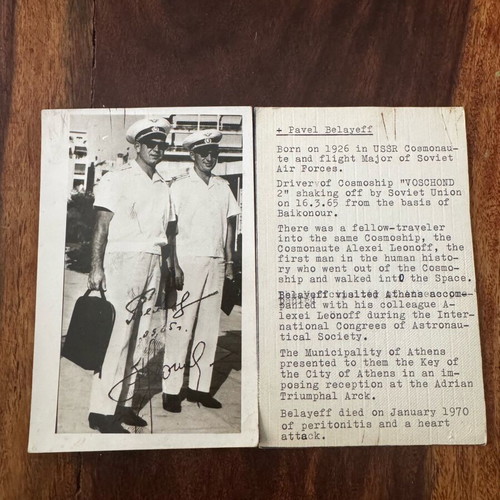 + Pavel Belayeff
Born on 1926 in USSR Cosmonau-
te and flight Major of Soviet
Air Forces.
Driver of Cosmoship "VOSCHOND
2" shaking off by Soviet Union
on 16.3.65 from the basis of
Baikonour.
There was a fellow-traveler
into the same Cosmoship, the
Cosmonaute Alexei Leonoff, the
first man in the human histo-
ry who went out of the Cosmo-
ship and walked intO the Space.
Belayeff visited Athens accom-
panied with his colleague A-
lexei Leonoff during the Inter-
national Congrees of Astronau-
tical Society.
The Municipality of Athens
presented to them the Key of
the City of Athens in an im-
posing reception at the Adrian
Triumphal Arck.
Belayeff died on January 1970
of peritonitis and a heart
attack.